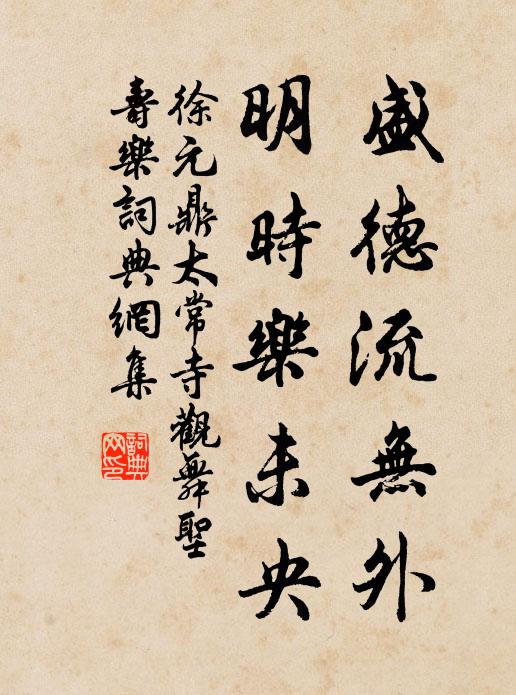 盛德流無外
明時樂未央
徐元鼎太常寺觀舞聖
壽樂詞典網集
詞典網印